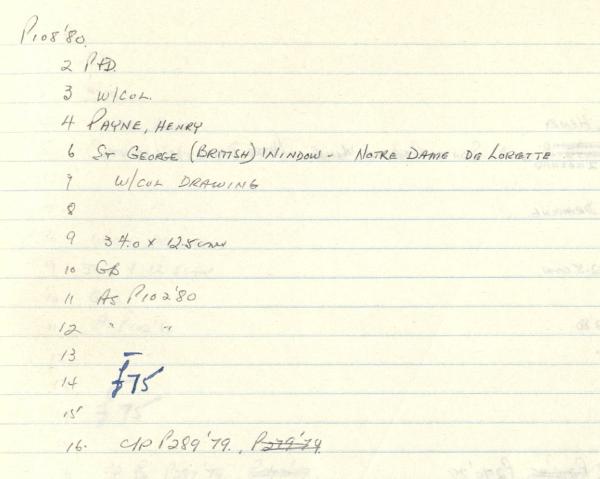 P108'80.
2 P+D.
3 W/COL.
4 PAYNE, HENRY
6 ST GEORGE (BRITISH) WINDOW - NOTRE DAME DE LORETTE
7 W/COL DRAWING
8
9 34.0 x 12.5cms
10 GB
11 AS P102'80
12 " "
13 —
14 £75
15
16. C/P P289'79., P279'79